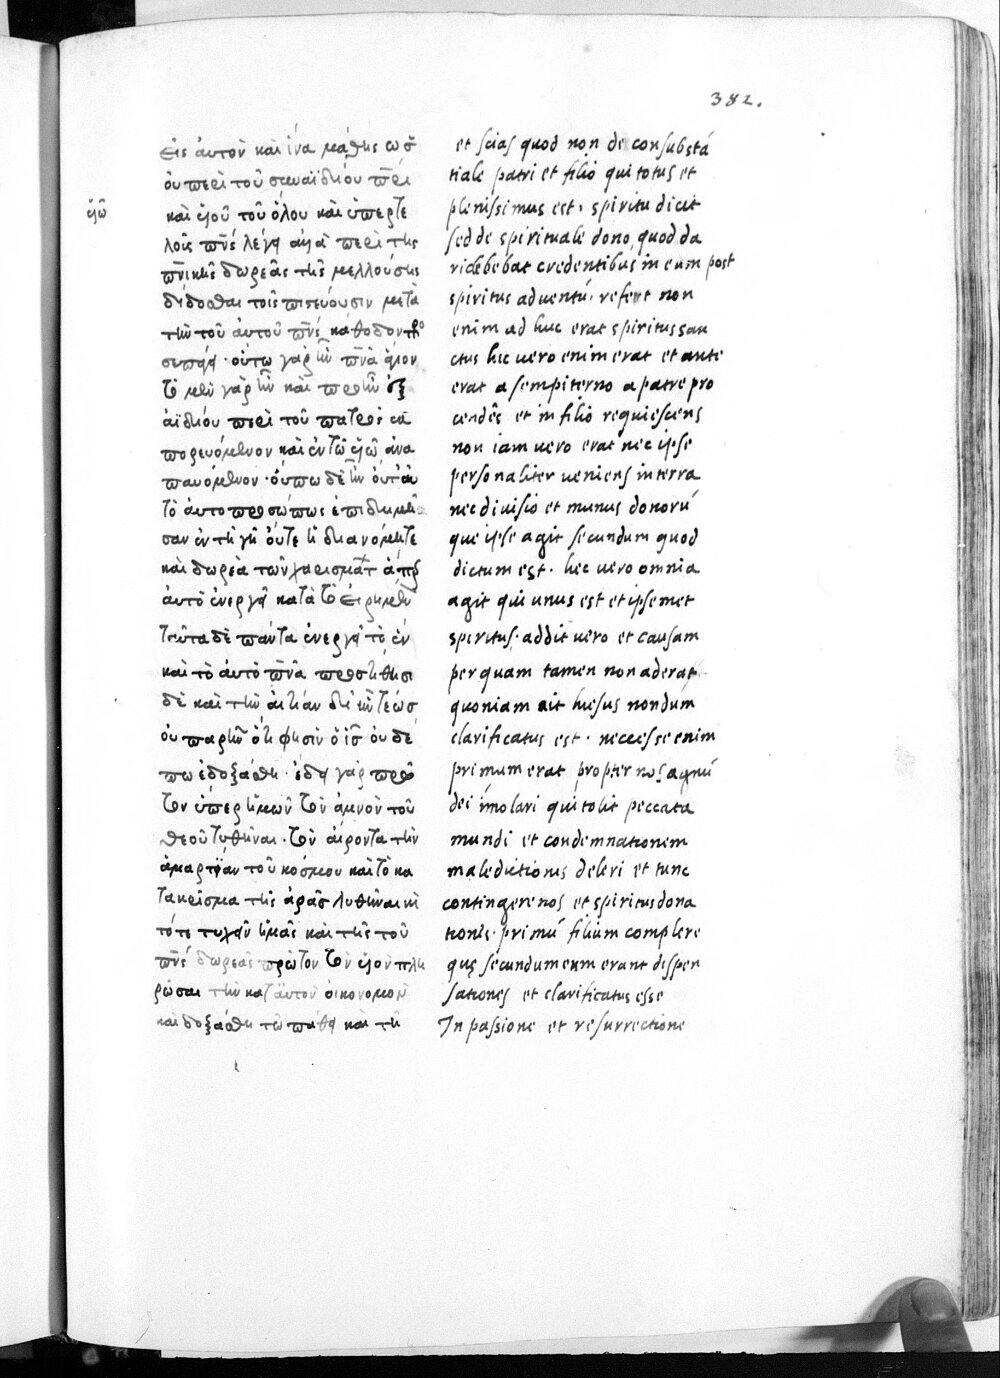 382.
εἰς αὐτὸν καὶ ἵνα μάθῃς ὡς
οὐ περὶ τοῦ συναϊδίου πρὶ
υἱῶ
καὶ υἱοῦ τοῦ ὅλου καὶ ὑπερτε
λοῦς πνς λέγει ἀλλὰ περὶ τῆς
πνικῆς δωρεᾶς τῆς μελλούσης
δίδοσθαι τοῖς πιστεύουσιν μετὰ
τὴν τοῦ αὐτοῦ πνς κάθοδον
οὕτω γὰρ ἦν πνα ἅγιον
τὸ μὲν γὰρ ἦν καὶ πρὶν ἐξ
ἀϊδίου περὶ τοῦ πατρὸς ἐκ
πορευόμενον καὶ ἐν τῶ υἱῶ ἀνα
παυόμενον · οὔπω δὲ ἦν οὔτ' αὐ
τὸ αὐτοπροσώπως ἐπιδημῆ
σαν ἐν τῆ γῆ οὔτε ἡ διανομή τε
καὶ δωρεὰ τῶν χαρισμάτ ἅπερ
αὐτὸ ἐνεργεῖ κατὰ τὸ εἰρημεν
ταῦτα δὲ πάντα ἐνεργεῖ τὸ ἐν
καὶ τὸ αὐτὸ πνα προστίθησι
δὲ καὶ τὴν αἰτίαν δι' ἣν τέως
οὐ παρῆν ὅτι φησὶν ὁ ις οὐδέ
πω ἐδοξάσθη · ἔδει γὰρ πρῶ
τον ὑπὲρ ἡμῶν τὸν ἀμνὸν τοῦ
θεοῦ τυθῆναι · τὸν αἴροντα τὴν
ἁμαρτίαν τοῦ κόσμου καὶ τὸ κα
τάκρισμα τῆς ἀρᾶς λυθῆναι κ
τότε τυχεῖν ἡμᾶς καὶ τῆς τοῦ
πνς δωρεᾶς πρῶτον τὸν υἱὸν πλη
ρῶσαι τὴν κατ' αὐτὸν οἰκονομίαν
καὶ δοξάσθη τῶ πάθει καὶ τῆ
et scias quod non de consubstā
tiale patri et filio qui totus et
plenissimus est · spiritu dicit
sed de spirituale dono quod da
ri debebat credentibus in eum post
spiritus adventū · refert non
enim ad huc erat spiritus san
ctus hic vero enim erat et ante
erat a sempiterno a patre pro
cendēs et in filio requiescens
non iam vero erat nec ipse
personaliter veniens in terra
nec divisio et munus donorū
que ipse agit secundum quod
dictum est · hec vero omnia
agit qui unus est et ipsemet
spiritus · addit vero et causam
per quam tamen non aderat
quoniam ait hiesus nondum
clarificatus est · necesse enim
primum erat propter nos agnū
dei ímolari qui tolit peccata
mundi et condemnationem
maledictionis deleri et tunc
contingere nos et spiritus dona
tionis · primū filium complere
quę secundum eum erant dispen
sationes et clarificatus esse
In passione et resurrectione